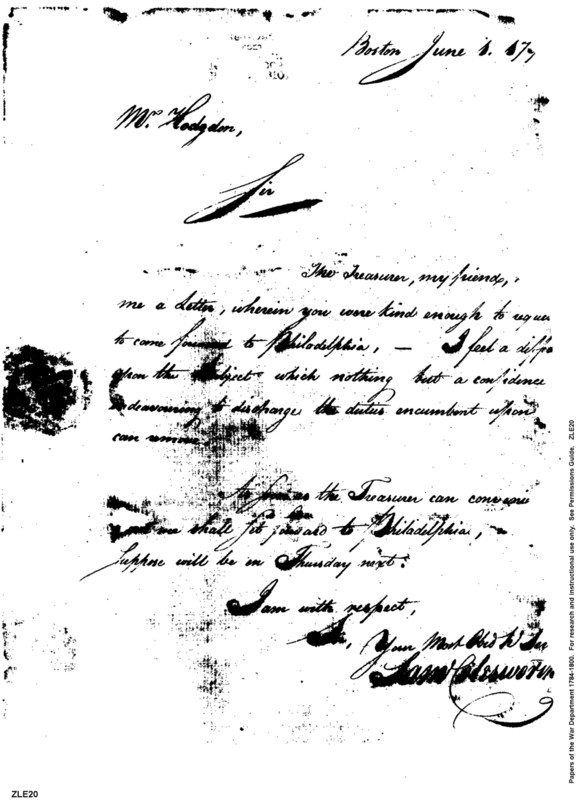 Boston June 1. 17
Mr. Hodgdon,
Sir
The Treasurer, my friend,
me a Letter, wherein you were kind enough to reques
to come forward to Philadelphia, — I feel a diffi
upon the subject which nothing but a confidence
endeavouring to discharge the duties encumbent upon
can remove.
As soon as the Treasurer can conveni
me shall set forward to Philadelphia,
suppose will be on Thursday next.
I am with respect,
Sir, Your Most Obed
ZLE20
Papers of the War Department 1784-1800. For research and instructional use only. See Permissions Guide. ZLE20